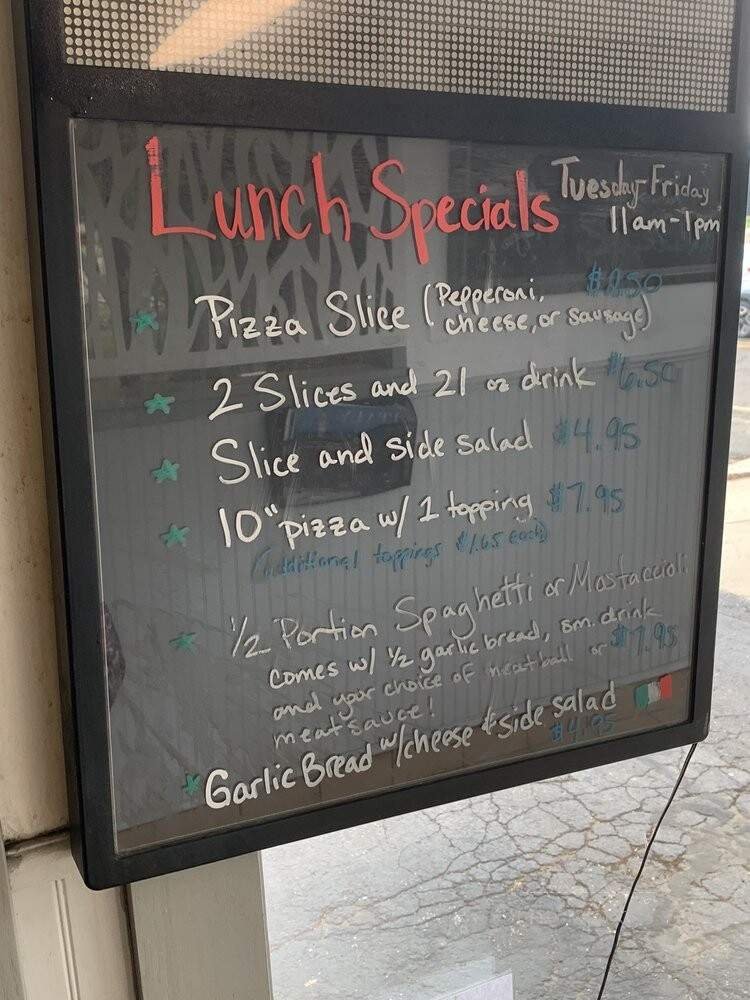 Lunch Specials Tuesday-Friday
11am-1pm
Pizza Slice (Pepperoni,
cheese, or sausage)
2 Slices and 21 oz drink $6.50
Slice and side salad $4.95
10" pizza w/ 1 topping $7.95
(additional toppings $1.65 each)
1/2 Portion Spaghetti or Mostaccioli
comes w/ 1/2 garlic bread, sm. drink
and your choice of meatball or $7.95
meatsauce!
Garlic Bread w/cheese & side salad
$4.95